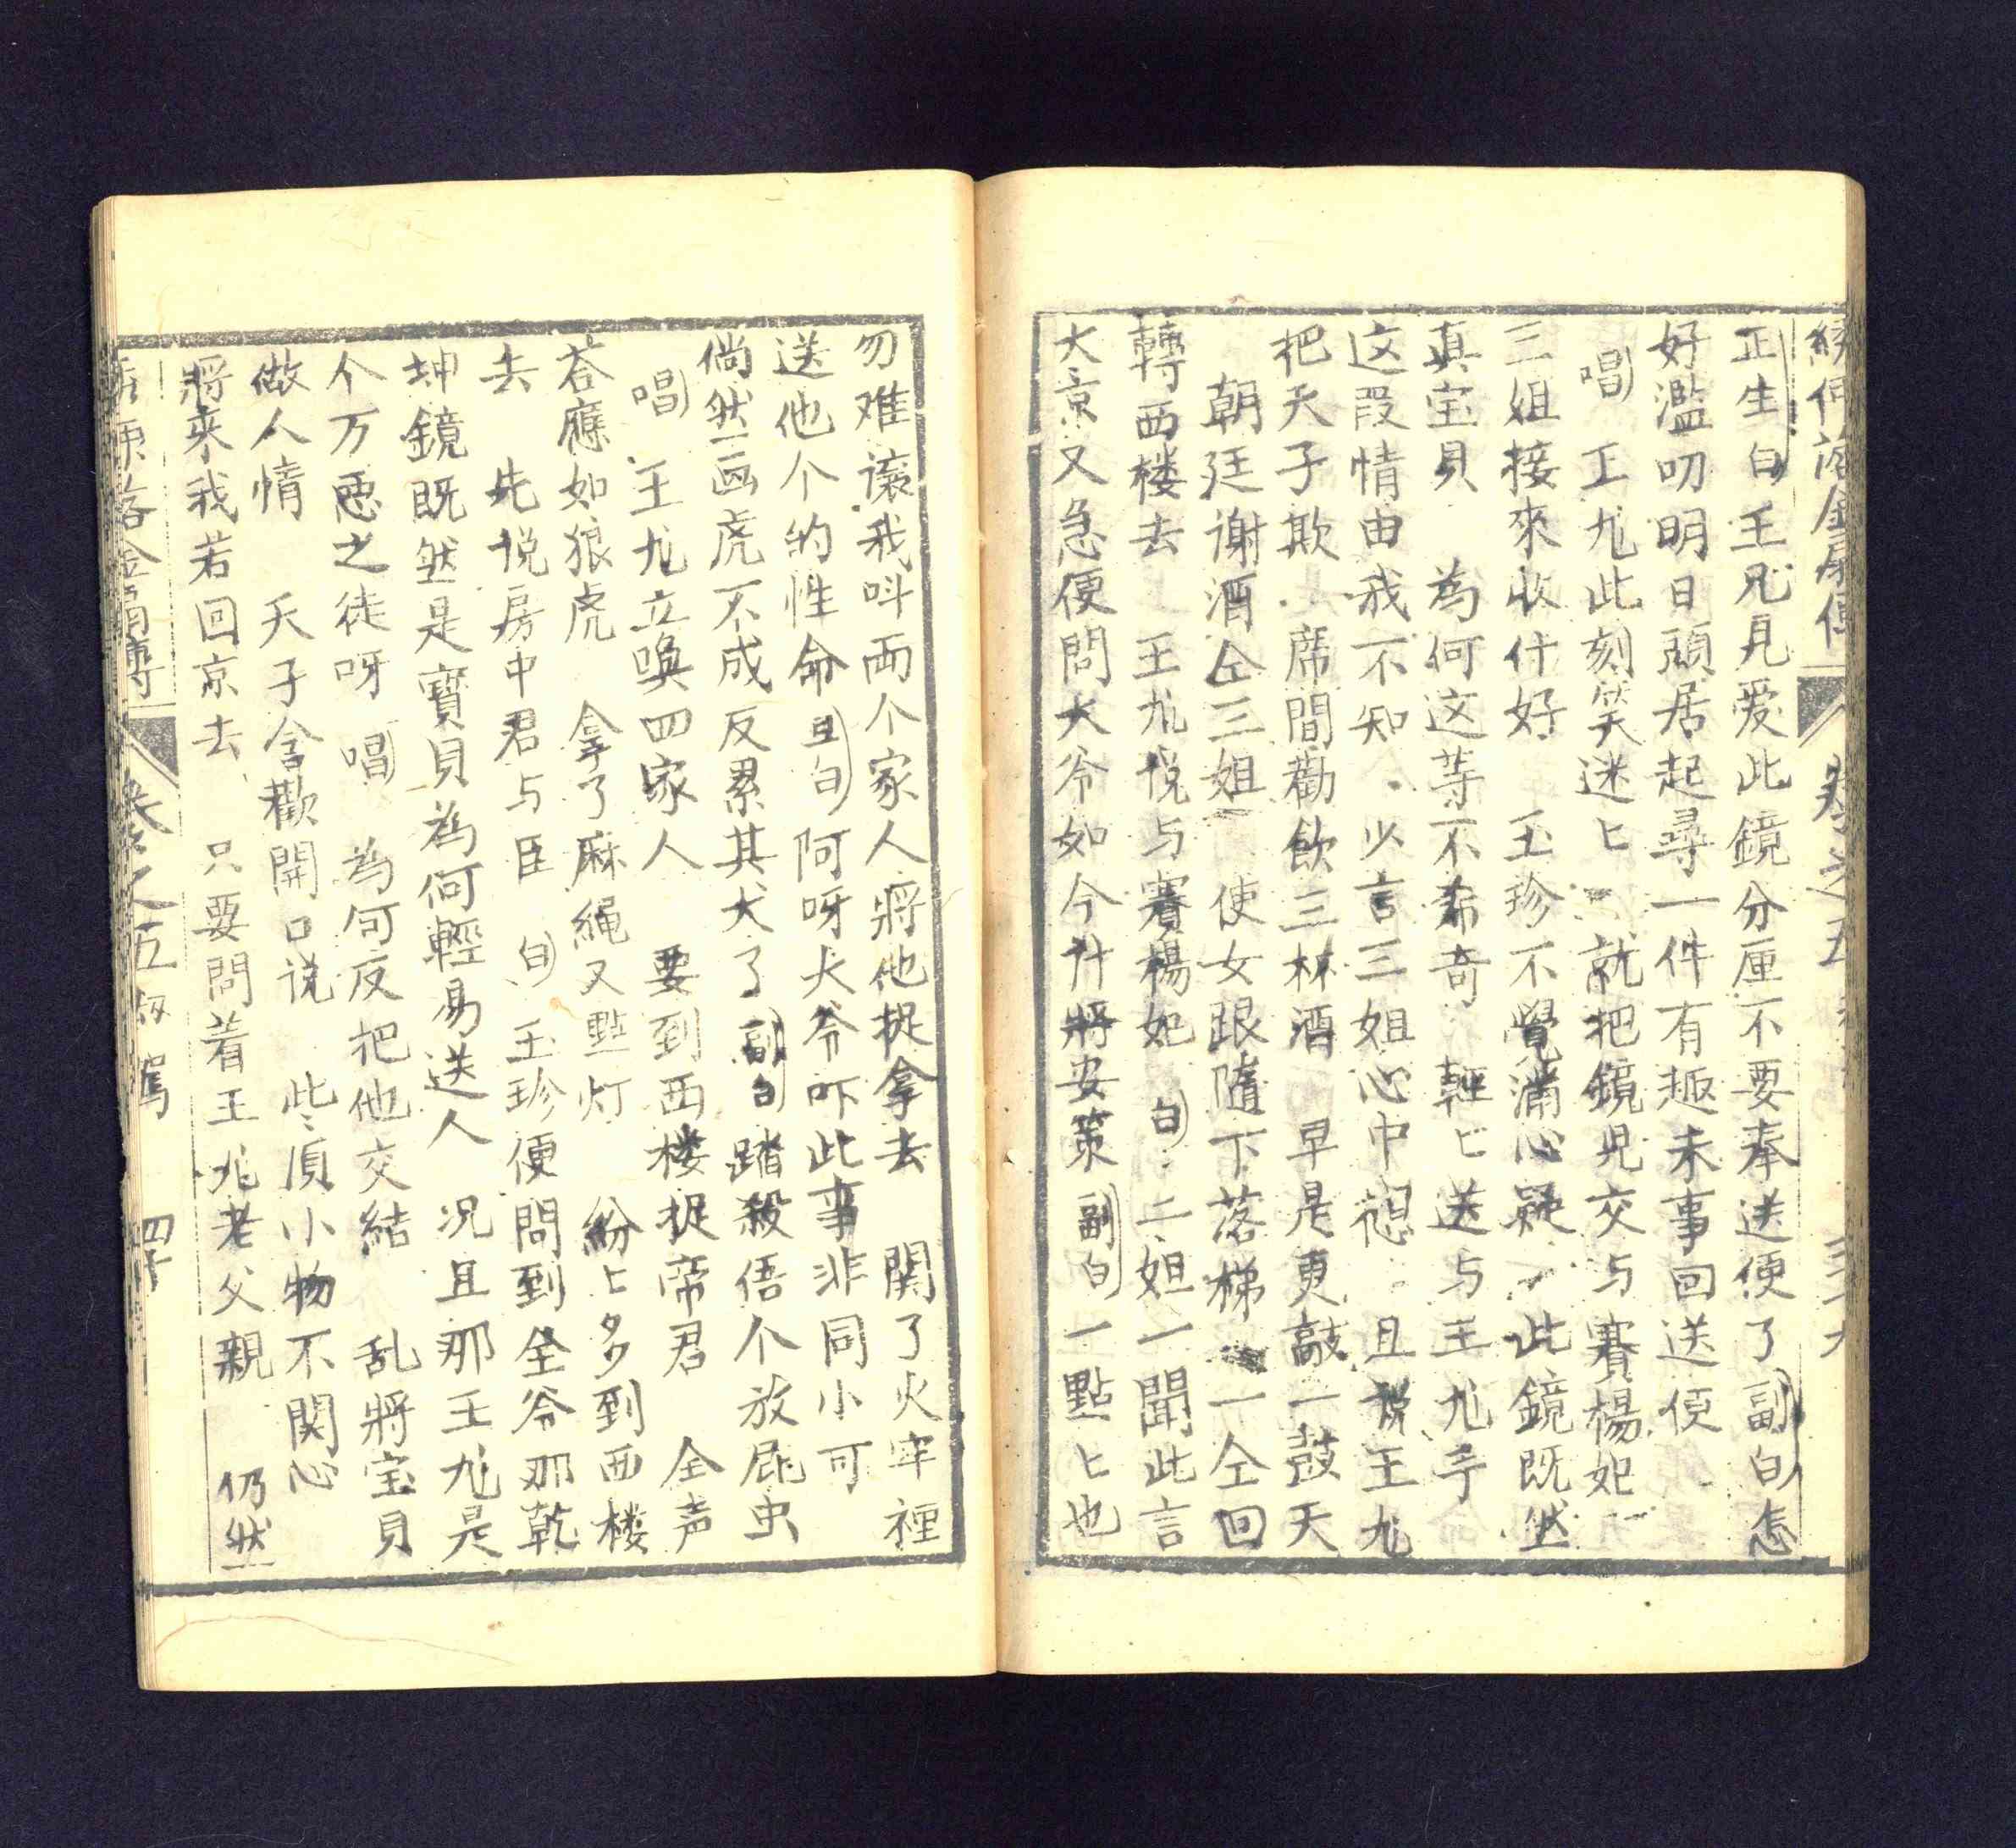 正生白王兄見爱此鏡分厘不要奉送便了副白怎
好濫叨明日頭居起尋一件有趣未事回送便
唱 王九此刻笑迷匕 就把鏡児交与賽楊妃
三姐接來收什好 王珍不覺滿心疑 此鏡既然
真宝貝 為何这等不希奇 輕匕送与王九手
这段情由我不知 少言三姐心中想 且說王九
把天子欺 席間勸飲三杯酒 早是更敲一鼓天
朝廷谢酒仝三姐 使女跟隨下落梯 一仝回
轉西楼去 王九悦与賽楊妃 白 二姐一聞此言
大京又急便問大爷如今計將安策副白一點匕也
勿难讓我呌両个家人將他捉拿去 関了火牢裡
送他个的性命旦白阿呀大爷吓此事非同小可
倘然画虎不成反累其犬了副白踏殺俉个放屁虫
唱 王九立喚四家人 要到西楼捉帝君 仝声
荅應如狼虎 拿了麻繩又點灯 紛匕多到西楼
去 先悦房中君与臣 白 王珍便問到全爷那乾
坤鏡既然是寳貝為何輕易送人 况且那王九是
个万悪之徒呀唱 為何反把他交結 乱將宝貝
做人情 天子含歡開口说 此須小物不関心
將来我若回京去 只要問着王九老父親 仍然
落金扇傳 卷之五 四十